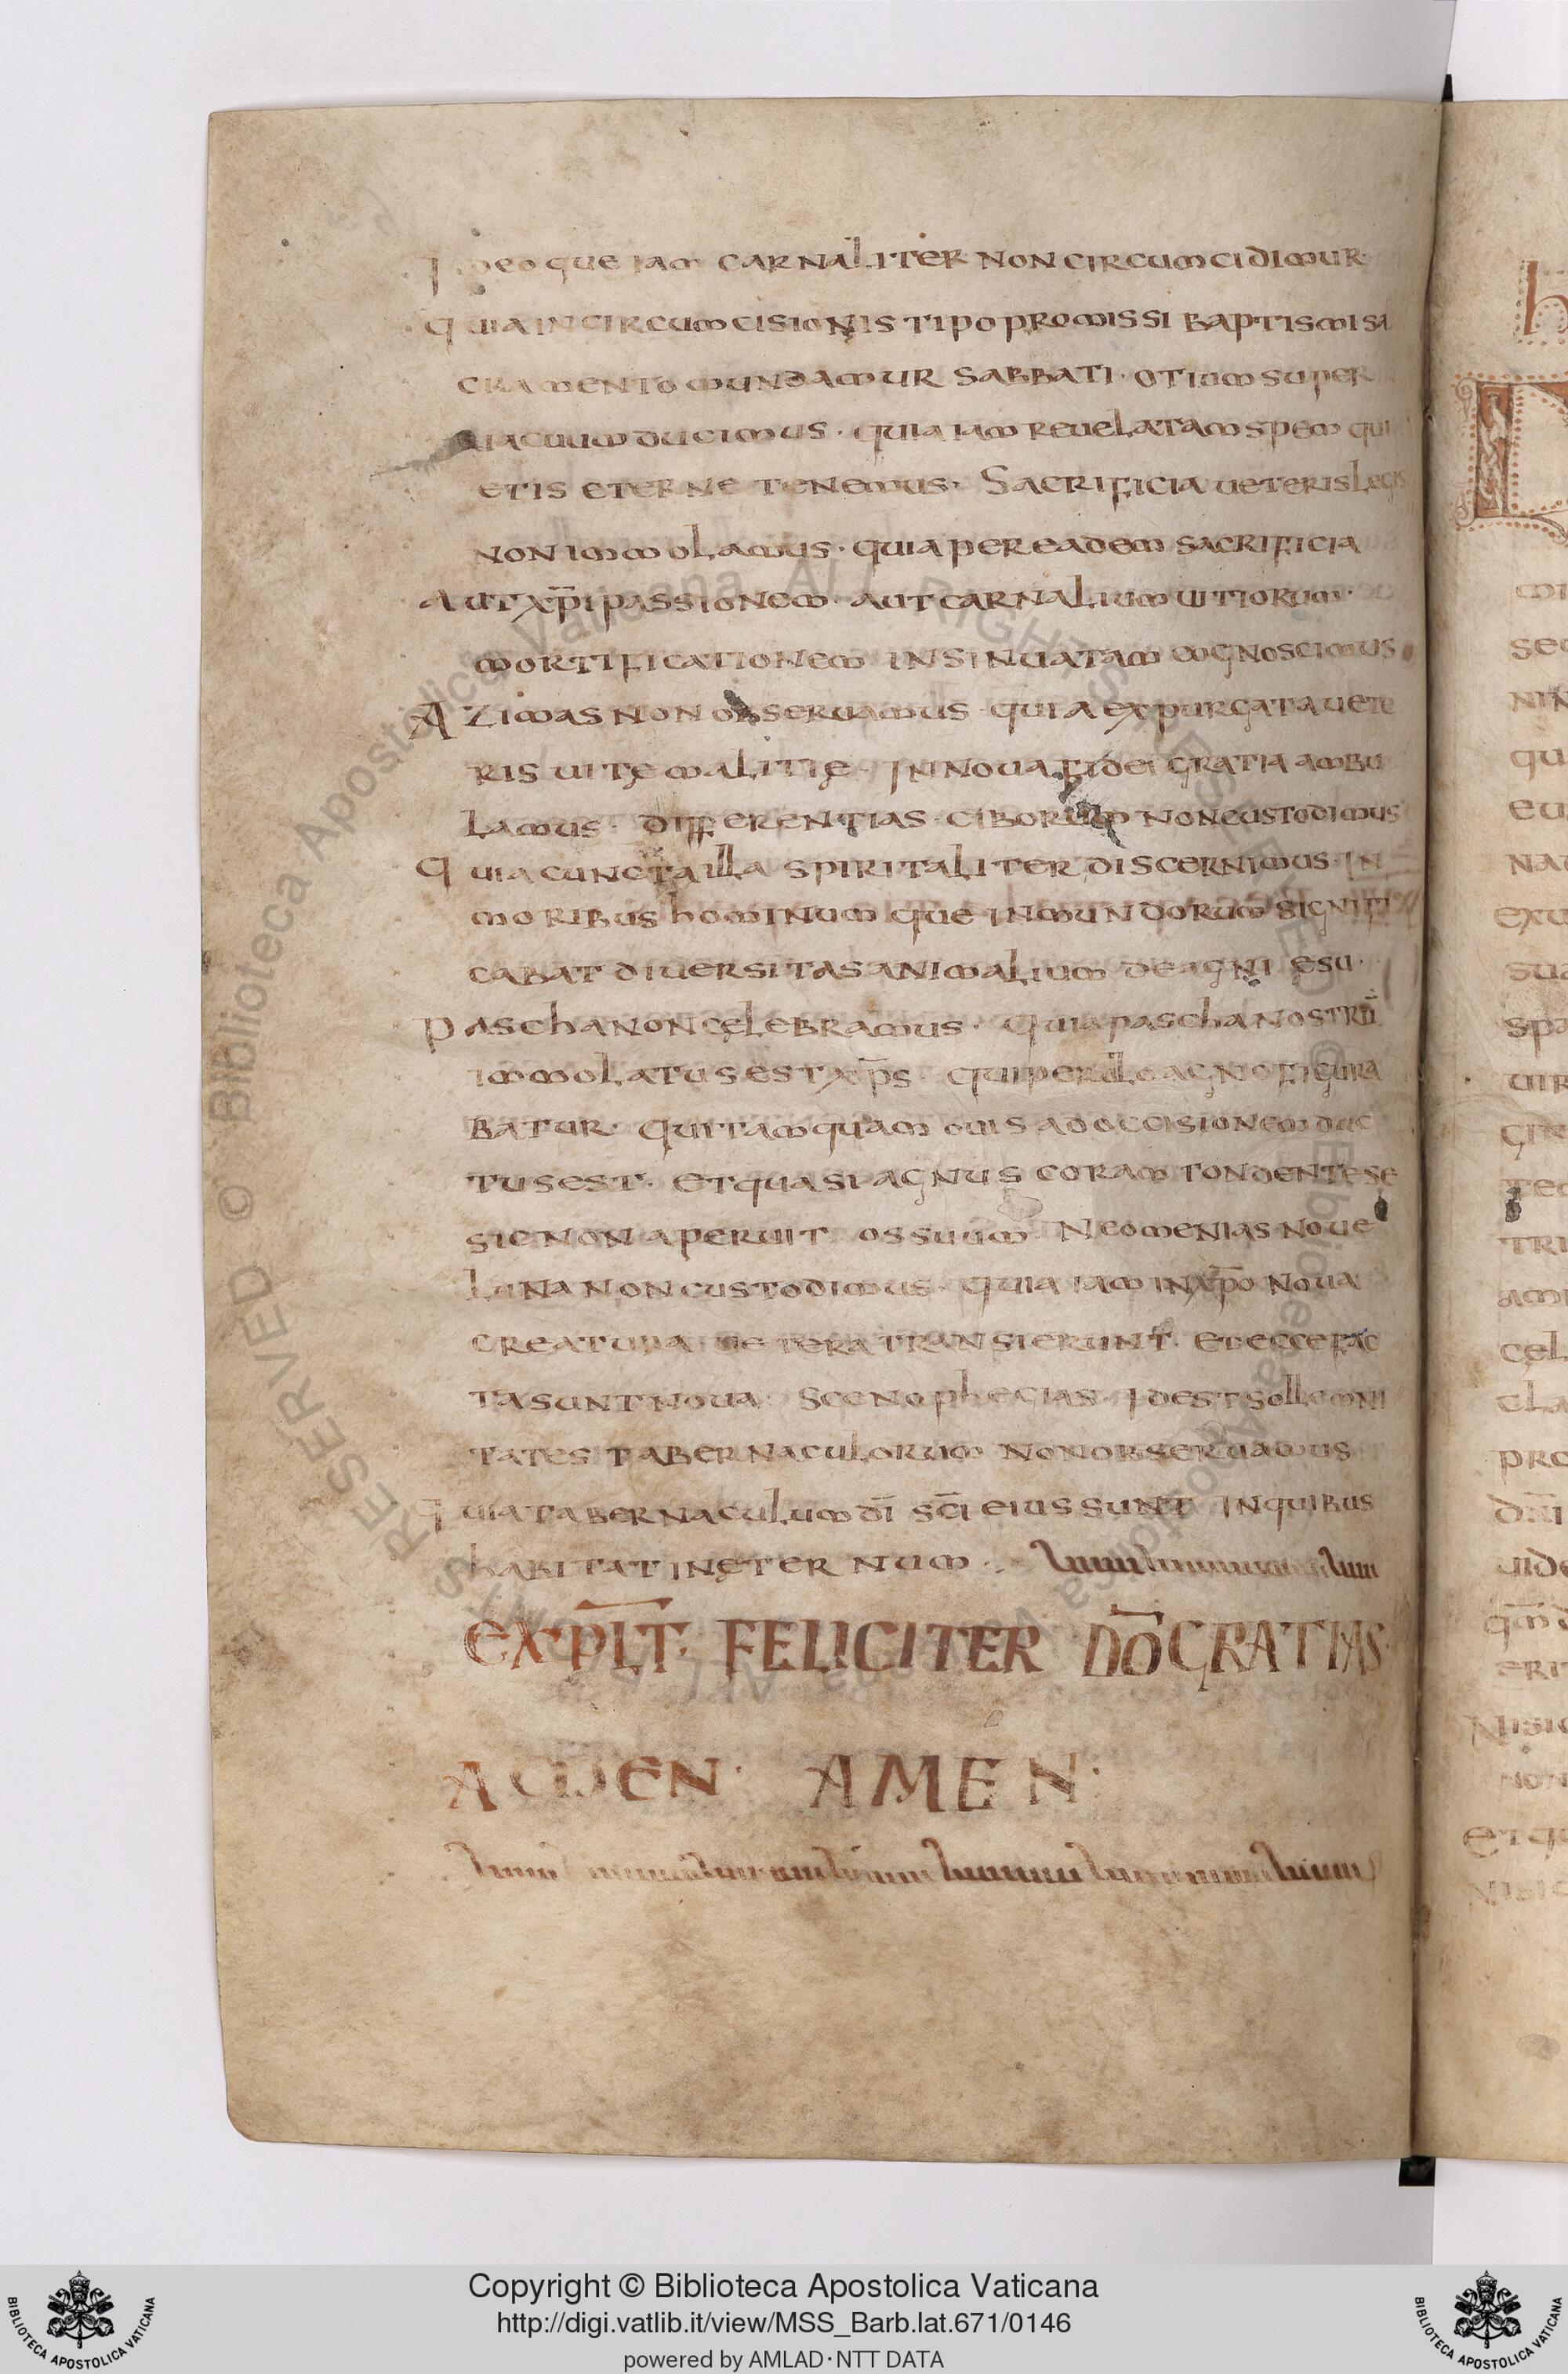 Ideoque iam carnaliter non circumcidimur
quia in circumcisionis tipo promissi baptismi sa
cramento mundamur sabbati · otium super
uacuum ducimus · quia iam reuelatam spem qui
etis eterne tenemus · Sacrificia ueteris legis
non immolamus · quia per eadem sacrificia
aut xp̄i passionem · aut carnalium uitiorum ·
mortificationem insinuatam cognoscimus
Azimas non obseruamus · quia expurgata uete
ris uitę malitię · In noua fidei gratia ambu
lamus · differentias · ciborum non custodimus
quia cuncta illa spiritaliter discernimus · in
moribus hominum que inmundorum signifi
cabat diuersitas animalium de agni esu ·
pascha non cęlebramus · quia pascha nostrū
immolatus est xp̄s · qui per illo agno figura
batur · qui tamquam ouis ad occisionem duc
tus est · et quasi agnus coram tondente se
sic non aperuit os suum · Neomenias noue
luna non custodimus · quia iam in xp̄o noua
creatura uetera transierunt · et ecce fac
ta sunt noua · Scenophegias · Idest sollemni
tates tabernaculorum non obseruamus
quia tabernaculum dī sc̄i eius sunt in quibus
habitat in ęternum ·
EXPLT̄ · FELICITER DŌ GRATIAS ·
AMEN · AMEN ·
Copyright © Biblioteca Apostolica Vaticana
http://digi.vatlib.it/view/MSS_Barb.lat.671/0146
powered by AMLAD·NTT DATA
BIBLIOTECA APOSTOLICA VATICANA
BIBLIOTECA APOSTOLICA VATICANA